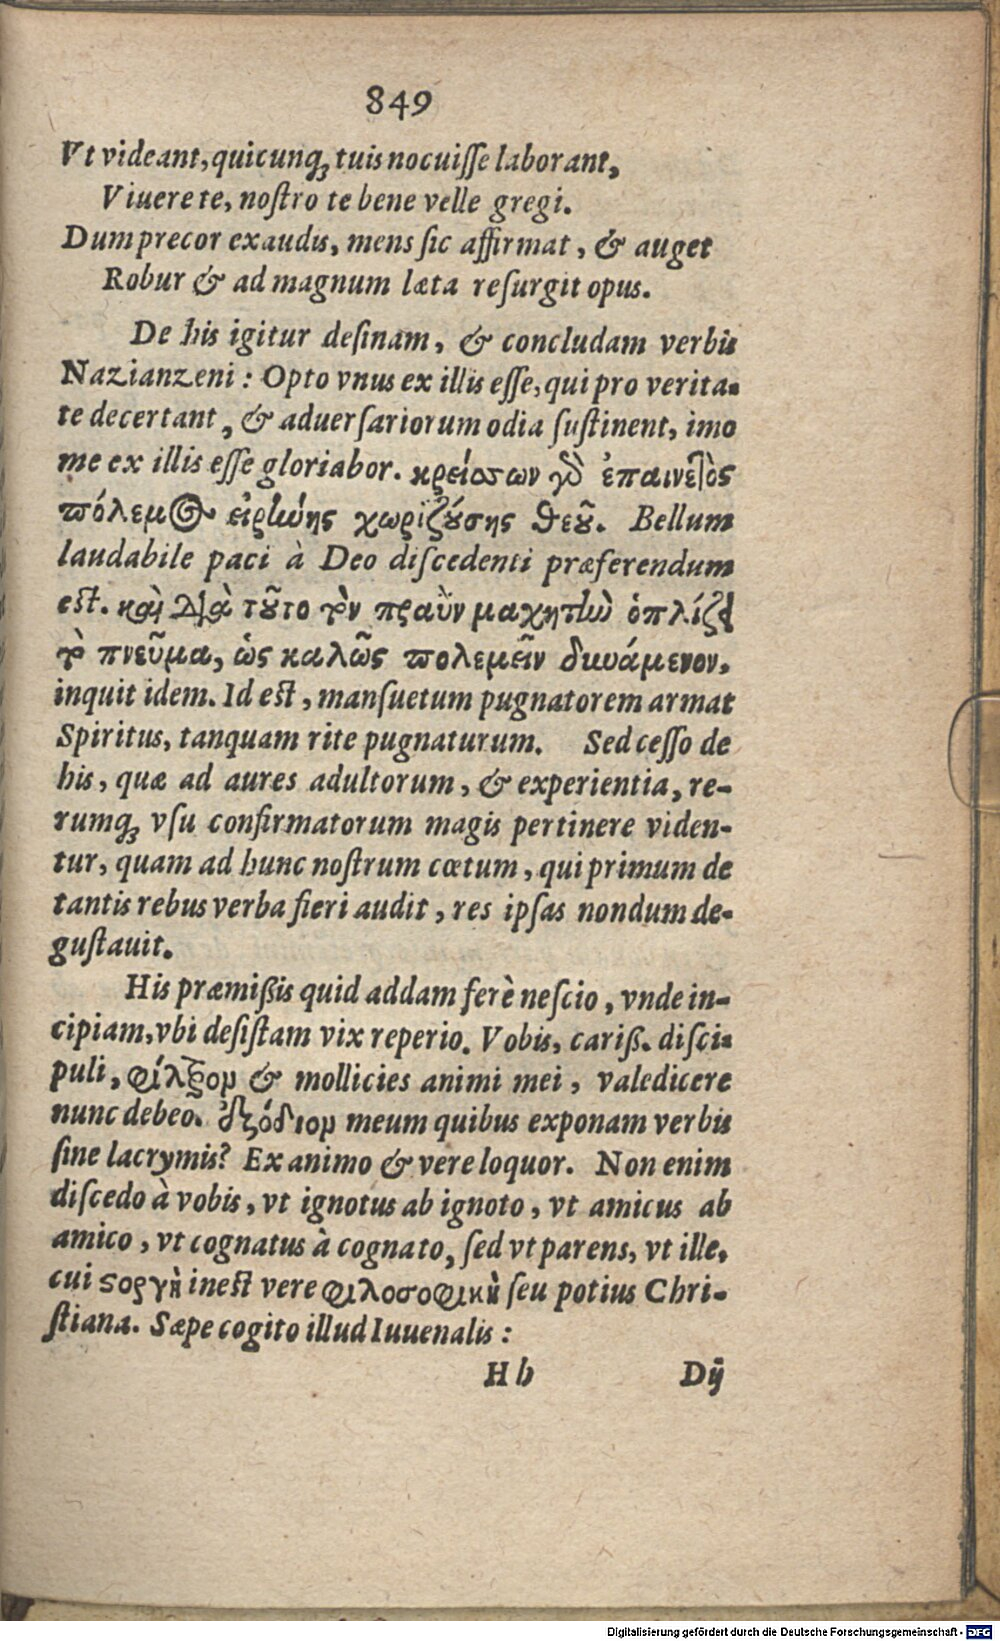 849
Vt videant, quicunq; tuis nocuiſſe laborant,
Viuere te, noſtro te bene velle gregi.
Dum precor exaudis, mens ſic affirmat, & auget
Robur & ad magnum læta reſurgit opus.
De his igitur deſinam, & concludam verbis
Nazianzeni: Opto vnus ex illis eſſe, qui pro verita-
te decertant, & aduerſariorum odia ſuſtinent, imo
me ex illis eſſe gloriabor. κρείσσων γὸ ἐπαινετὸς
πόλεμος εἰρήνης χωριζούσης θεοῦ. Bellum
laudabile paci à Deo diſcedenti præferendum
eſt. καὶ διὰ τοῦτο τὸν πραῢν μαχητὴν ὁπλίζει
τὸ πνεῦμα, ὡς καλῶς πολεμεῖν δυνάμενον,
inquit idem. Id eſt, manſuetum pugnatorem armat
Spiritus, tanquam rite pugnaturum. Sed ceſſo de
his, quæ ad aures adultorum, & experientia, re-
rumq; vſu confirmatorum magis pertinere viden-
tur, quam ad hunc noſtrum cœtum, qui primum de
tantis rebus verba fieri audit, res ipſas nondum de-
guſtauit.
His præmißis quid addam ferè neſcio, vnde in-
cipiam, vbi deſiſtam vix reperio. Vobis, cariß. diſci-
puli, & mollicies animi mei, valedicere
nunc debeo. meum quibus exponam verbis
ſine lacrymis? Ex animo & vere loquor. Non enim
diſcedo à vobis, vt ignotus ab ignoto, vt amicus ab
amico, vt cognatus à cognato, ſed vt parens, vt ille,
cui ϛοργὴ ineſt vere φιλοσοφικὴ ſeu potius Chri-
ſtiana. Sæpe cogito illud Iuuenalis:
H h Dÿ
Digitalisierung gefördert durch die Deutsche Forschungsgemeinschaft - DFG